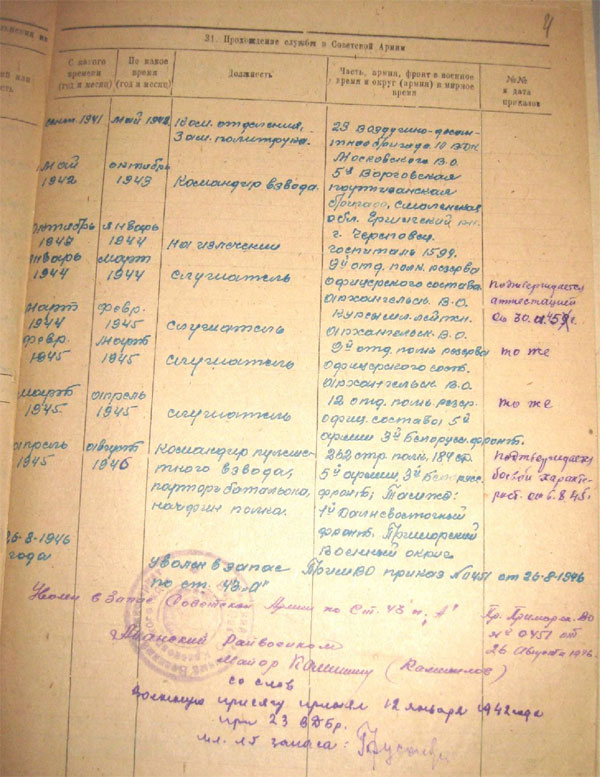 4
31. Прохождение службы в Советской Армии
С какого времени (год и месяц)
По какое время (год и месяц)
Должность
Часть, армия, фронт в военное время и округ (армия) в мирное время
№№ и дата приказов
сент. 1941 май 1942 Ком. отделения, 23 Воздушно-десан-
Зам. политрука. тная бригада 10 ВДК
Московского В.О.
май 1942 октябрь 1943 Командир взвода. 5я Ворговская
партизанская
бригада, Смоленская
обл. Ершичский рн.
октябрь январь 1944 на излечении г. Череповец
госпиталь 1599.
январь 1944 март 1944 слушатель 9й отд. полк резерва
офицерского состава
Архангельск. В.О.
подтверждается
аттестацией
март 1944 февр. 1945 слушатель Курсы мл. лейтен.
Архангельск. В.О.
февр. 1945 март 1945 слушатель 9й отд. полк резерва
офицерского сост.
Архангельск В.О.
то же
март 1945 апрель 1945 слушатель 12 отд. полк резер.
офиц. состава, 5й
армии 3й Белорус. фронт.
то же
апрель 1945 август 1946 Командир пулеме-
тного взвода,
парторг батальона,
начфин полка.
262 стр. полк, 184 ср.
5й армии, 3й Белорус.
фронт, Также:
1й Дальневосточный
фронт. Приморский
Военный округ.
подтверждается
боевой характе-
рист. от 6.8.45г.
26-8-1946 года уволен в запас ПримВО приказ № 0451 от 26-8-1946
по ст. 43 "А"
Уволен в Запас Советской Армии по Ст. 43 п. "А"
Пр. Приморск. ВО
№ 0451 от
26 Августа 1946.
Райвоенком
Майор
со слов
Военную присягу принял 12 января 1942 года
при 23 ВДбр.
мл. л-т запаса: